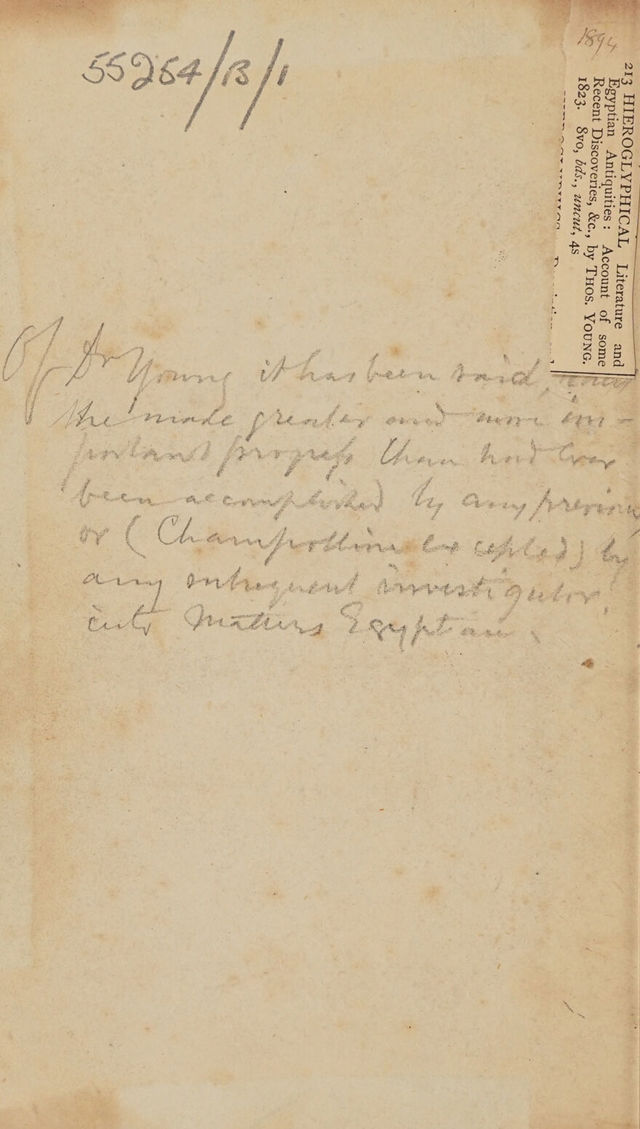 55254/B/1
1894
213 HIEROGLYPHICAL Literature and
Egyptian Antiquities: Account of some
Recent Discoveries, &c., by THOS. YOUNG.
1823. 8vo, bds., uncut, 4s
Of Dr Young it has been said, that
he made greater and more im-
portant progress than had ever
been accomplished by any previous
or (Champolline excepted) by
any subsequent investigator,
into Matters Egyptian.